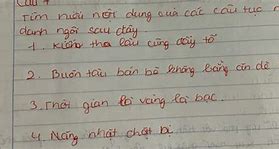 Câu 4
Tìm nước nội dung của các câu tục n
danh ngôn sau đây.
1. Không tha lâu cũng đầy tổ
2. Buôn tàu bán bè không bằng ăn dè
3. Thời gian là vàng là bạc.
4. Năng nhặt chặt bị.